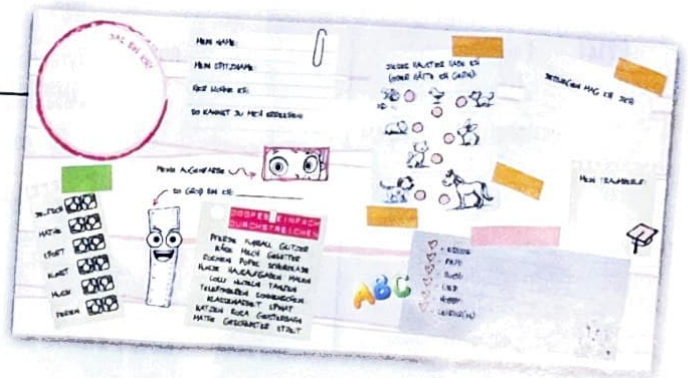 DAS BIN ICH!
MEIN NAME:
MEIN SPITZNAME:
HIER WOHNE ICH:
SO KANNST DU MICH ERREICHEN:
MEINE AUGENFARBE
SO GROß BIN ICH:
DEUTSCH
MATHE
SPORT
KUNST
MUSIK
FERIEN
DOOFES EINFACH
DURCHSTREICHEN
PFERDE FUSSBALL GLITZER
KÄSE MILCH GEWITTER
KUCHEN PUPSE SCHOKOLADE
HUNDE HAUSAUFGABEN MALEN
LOLLI TANZEN
TELEFONIEREN SONNENSCHEIN
KLASSENARBEIT SPINAT
KATZEN ROSA GEISTERBAHN
MATHE GESCHWISTER STREIT
DIESES HAUSTIER HABE ICH
(ODER HÄTTE ICH GERN):
DESWEGEN MAG ICH DICH
MEIN TRAUMBERUF:
ABC
FILM
BUCH
LIED
HOBBY
LEHRER(IN)